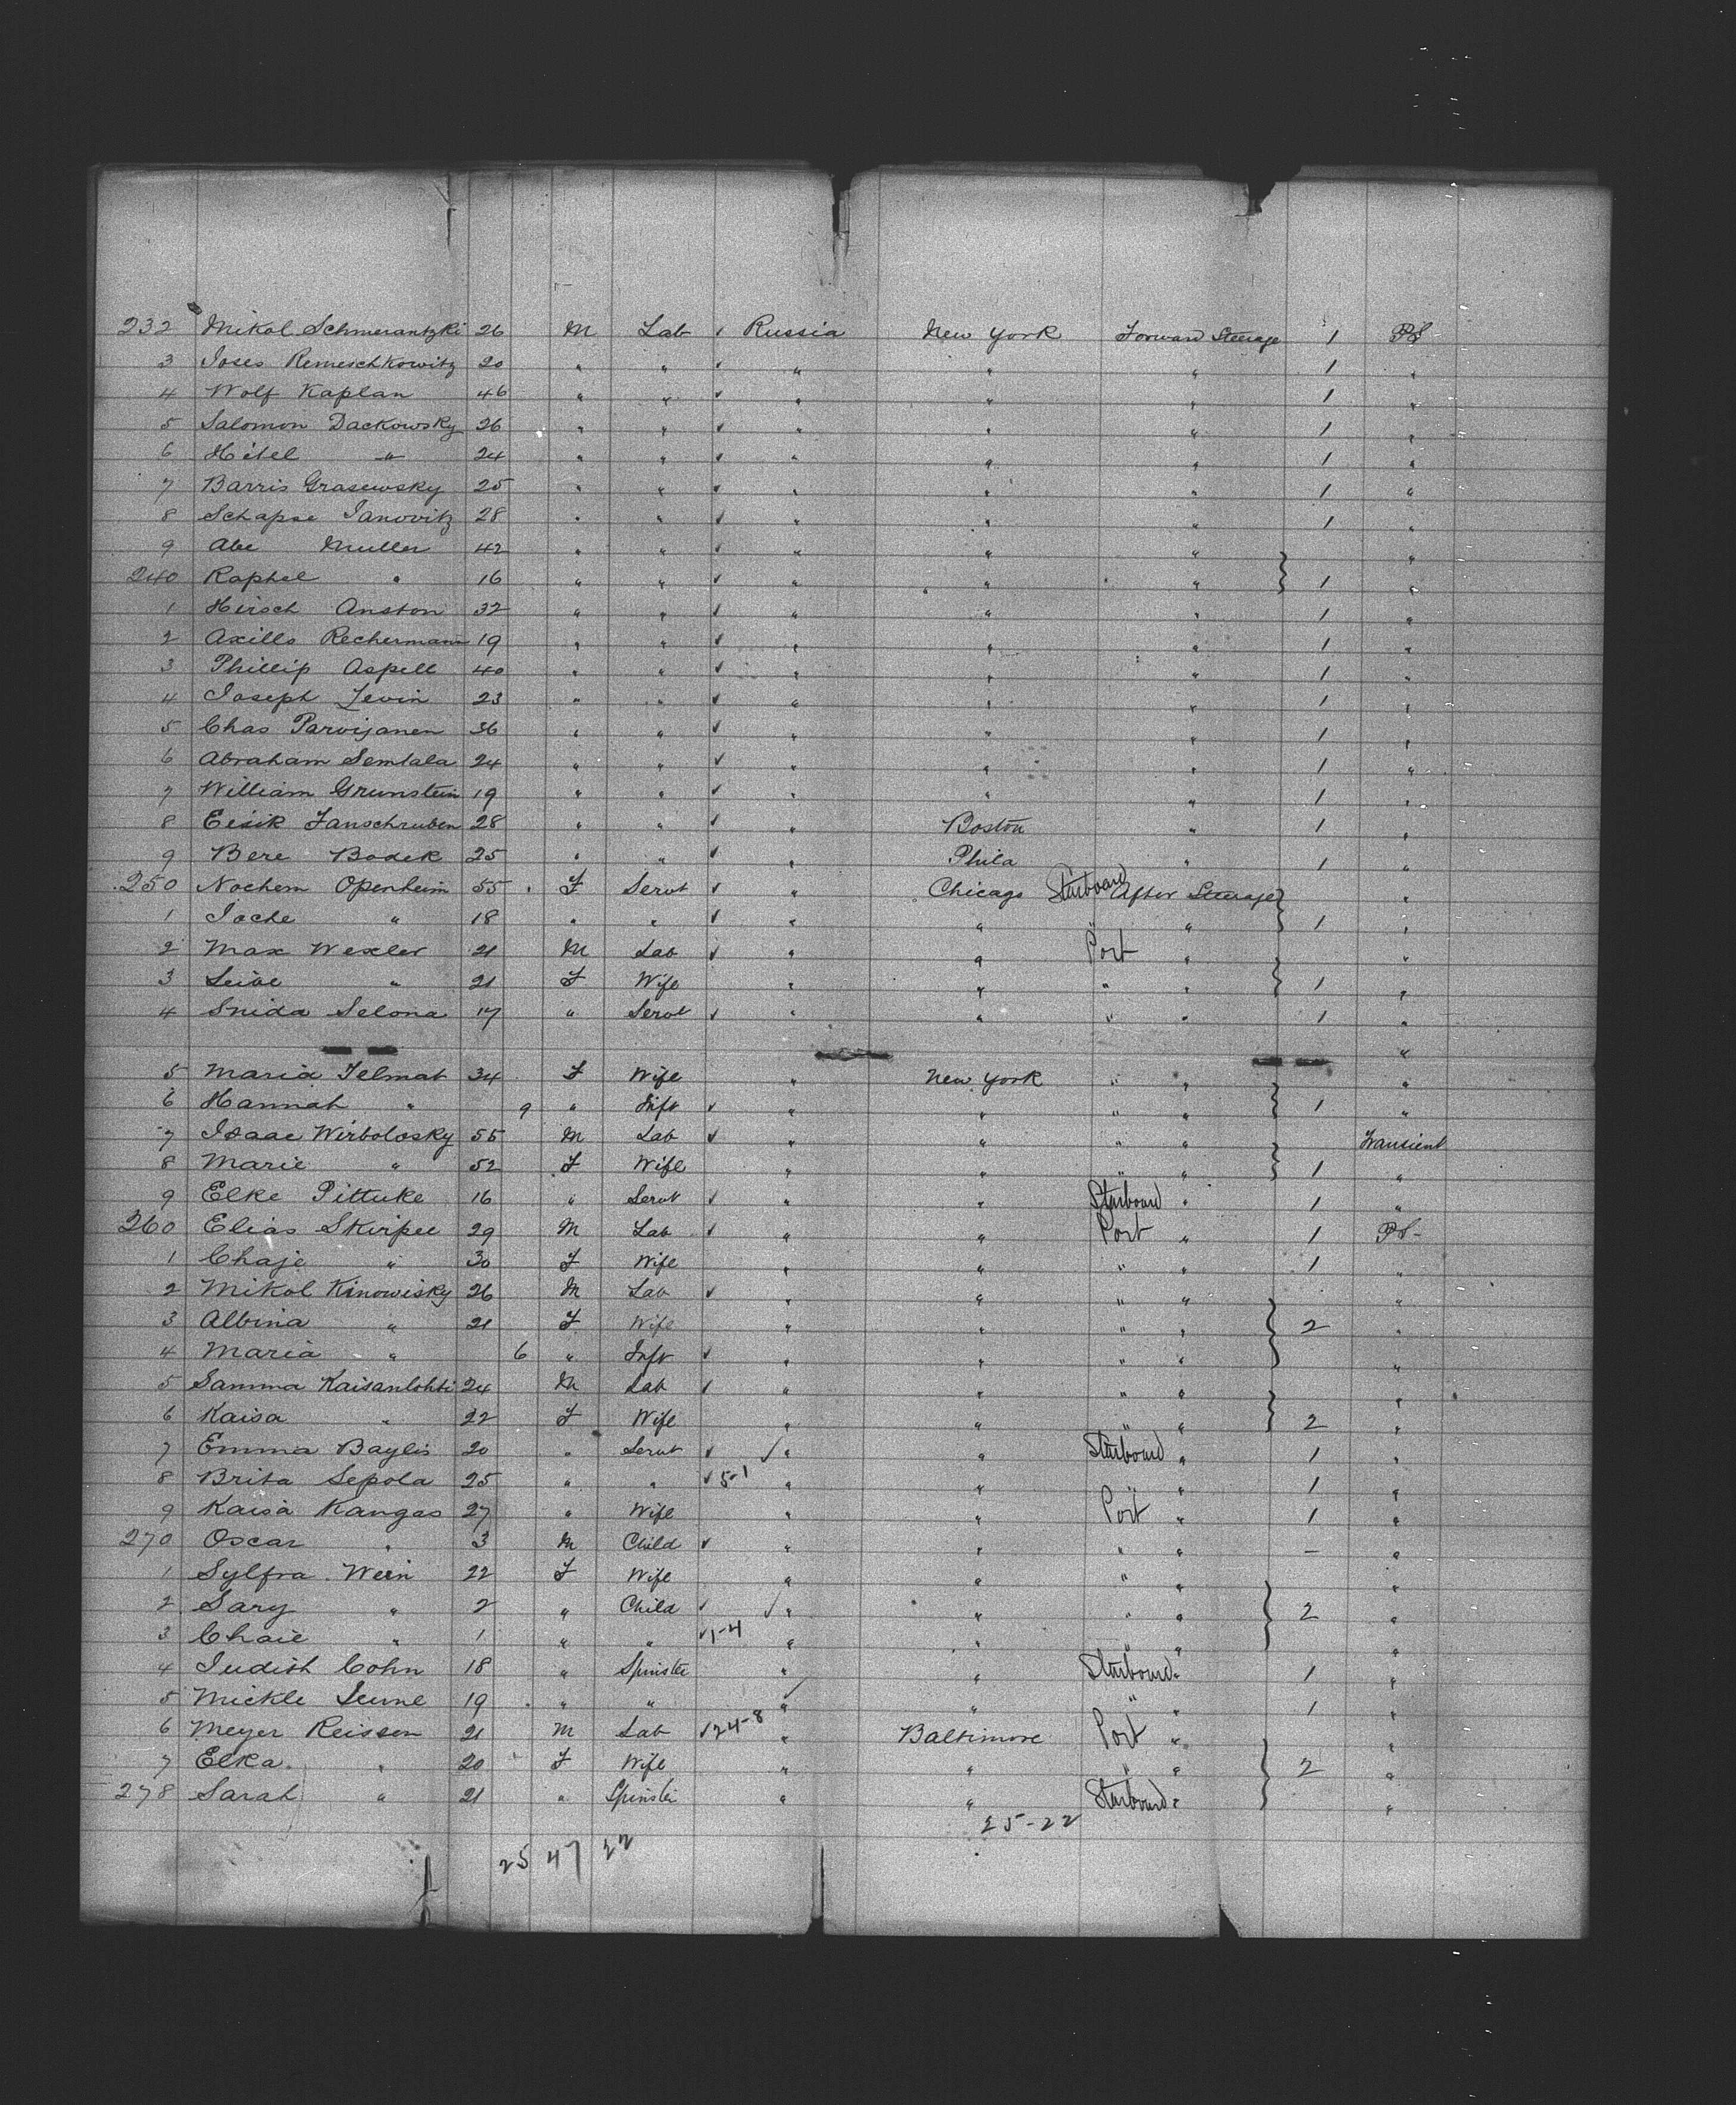 232 Mikol Schmerantzki 26 M Lab ✓ Russia New York Forward Steerage 1 PS
3 Joses Remeschkowitz 20 " " ✓ " " " 1 "
4 Wolf Kaplan 46 " " ✓ " " " 1 "
5 Salomon Dackowsky 26 " " ✓ " " " 1 "
6 Hitel " 24 " " ✓ " " " 1 "
7 Barris Grasewsky 25 " " ✓ " " " 1 "
8 Schapse Janovitz 28 " " ✓ " " " 1 "
9 Abe Muller 42 " " ✓ " " " "
240 Raphel " 16 " " ✓ " " " 1 "
1 Hirsch Anston 32 " " ✓ " " " 1 "
2 Axills Rechermann 19 " " ✓ " " " 1 "
3 Phillip Aspell 40 " " ✓ " " " 1 "
4 Joseph Levin 23 " " ✓ " " " 1 "
5 Chas Parvijanen 36 " " ✓ " " " 1 "
6 Abraham Semtala 24 " " ✓ " " " 1 "
7 William Grunstein 19 " " ✓ " " " 1 "
8 Eisik Janschruben 28 " " ✓ " Boston " 1 "
9 Bere Bodek 25 " " ✓ " Phila " 1 "
250 Nochem Openheim 55 F Servt ✓ " Chicago Starboard After Steerage "
1 Joche " 18 " " ✓ " " " " 1 "
2 Max Wexler 21 M Lab ✓ " " Port " "
3 Leibe " 21 F Wife " " " " 1 "
4 Snida Selona 17 " Servt ✓ " " " " 1 "
"
5 Maria Telmat 34 F Wife " New York " " "
6 Hannah " 9 " Inft ✓ " " " " 1 "
7 Isaac Wirbolosky 55 M Lab ✓ " " " " Transient
8 Marie " 52 F Wife " " " " 1 "
9 Elke Pittuke 16 " Servt ✓ " " Starboard " 1 "
260 Elias Skirpee 29 M Lab ✓ " " Port " 1 PS-
1 Chaje " 30 F Wife " " " " 1 "
2 Mikol Kinowisky 26 M Lab ✓ " " " " "
3 Albina " 21 F Wife " " " " 2 "
4 Maria " 6 " Inft ✓ " " " " "
5 Samma Kaisanlohti 24 M Lab ✓ " " " " "
6 Kaisa " 22 F Wife " " " " 2 "
7 Emma Baylis 20 " Servt ✓ ✓ " " Starboard " 1 "
8 Brita Sepola 25 " " ✓ 5-1 " " " " 1 "
9 Kaisa Kangas 27 " Wife " " Port " 1 "
270 Oscar " 3 M Child ✓ " " " " - "
1 Sylfra Wein 22 F Wife " " " " "
2 Sary " 2 " Child ✓ ✓ " " " " 2 "
3 Chaie " 1 " " ✓ 1-4 " " " " "
4 Judish Cohn 18 " Spinster " " Starboard " 1 "
5 Mickle Leune 19 " " ✓ " " " " 1 "
6 Meyer Reissen 21 M Lab ✓ 24-8 " Baltimore Port " "
7 Elka " 20 F Wife " " " " 2 "
278 Sarah " 21 " Spinster " " Starboard " "
25-22
25 47 22